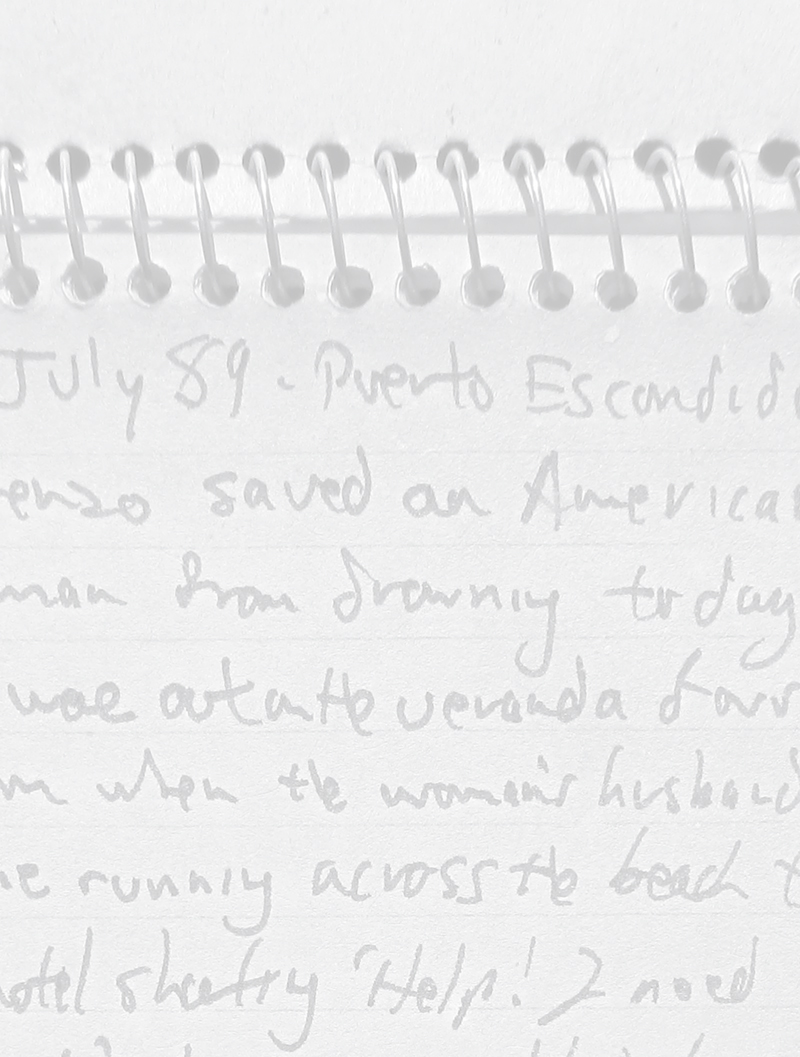 July 89. Puerto Escondido
enzo saved an American
man from drowning today
were out on the veranda
when the woman's husband
running across the beach
hotel shouting 'Help! I need